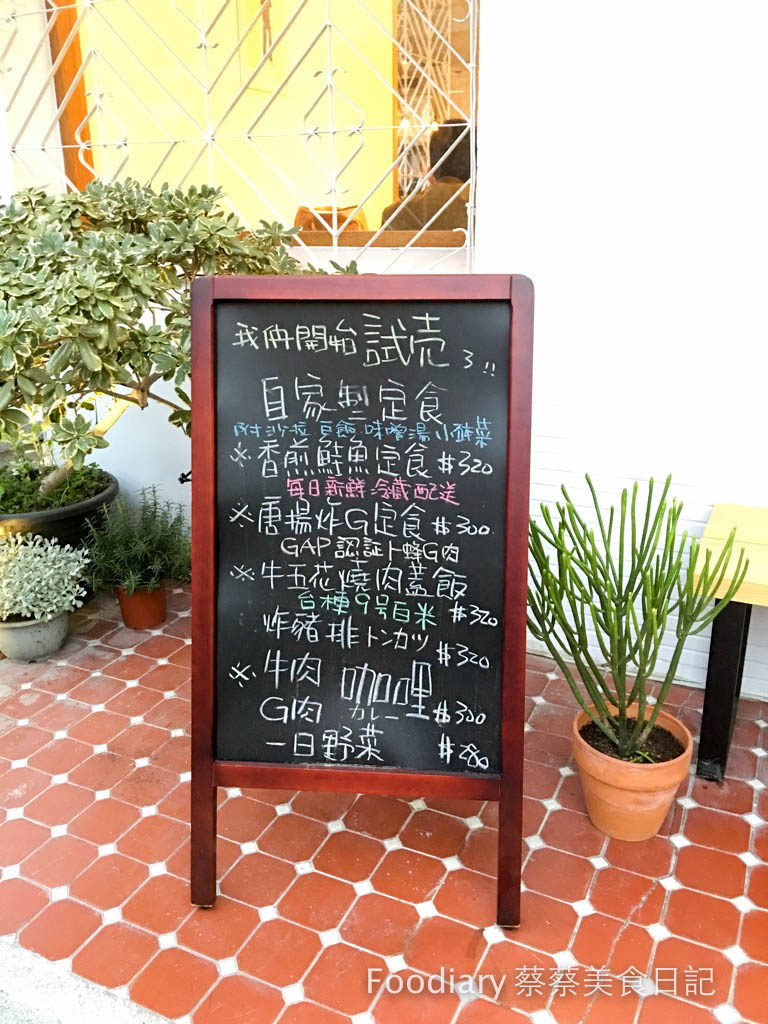 我們開始試売了!!
自家製定食
附沙拉 白飯 味噌湯 小酵菜
※香煎鮭魚定食 $320
每日新鮮冷藏配送
※唐揚炸G定食 $300
GAP認証卜蜂G肉
※牛五花燒肉蓋飯
台種9号白米 $320
炸豬排トンカツ $320
※牛肉 咖哩
G肉 カレー $300
一日野菜 $280
Foodiary 蔡蔡美食日記